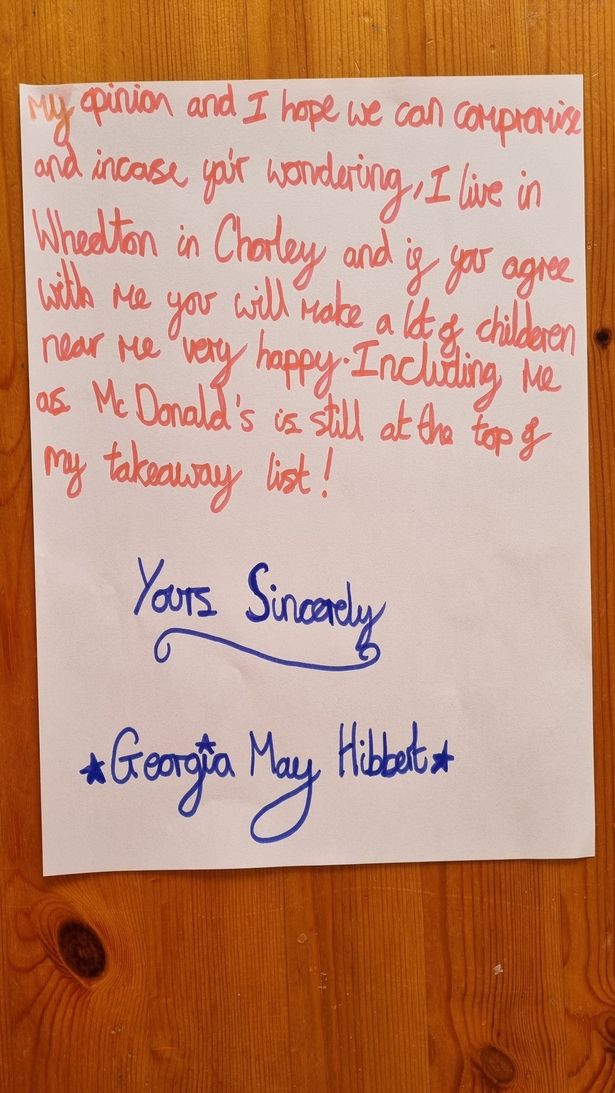 My opinion and I hope we can compromise
and incase ya'r wondering, I live in
Wheelton in Chorley and if you agree
with me you will make a lot of childeren
near me very happy. Including me
as Mc Donald's is still at the top of
my takeaway list!
Yours Sincerely
Georgia May Hibbert